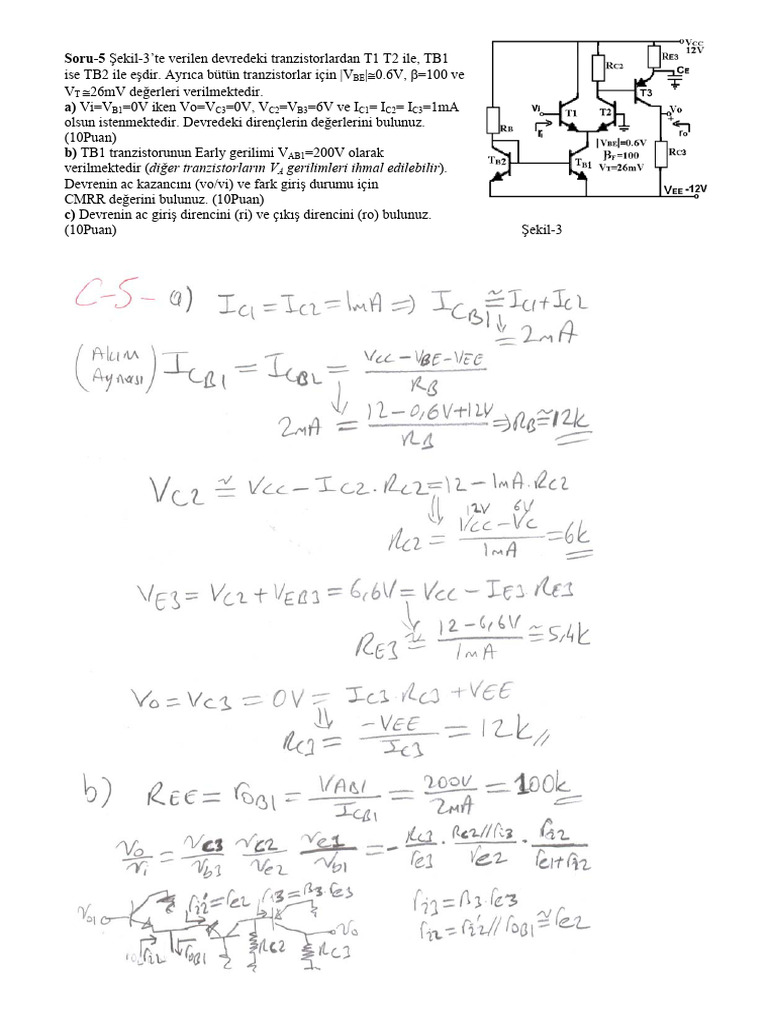 Soru-5 Şekil-3'te verilen devredeki tranzistorlardan T1 T2 ile, TB1
ise TB2 ile eşdir. Ayrıca bütün tranzistorlar için |VBE|≅0.6V, β=100 ve
VT≅26mV değerleri verilmektedir.
a) Vi=VB1=0V iken Vo=VC3=0V, VC2=VB3=6V ve IC1= IC2= IC3=1mA
olsun istenmektedir. Devredeki dirençlerin değerlerini bulunuz.
(10Puan)
b) TB1 tranzistorunun Early gerilimi VAB1=200V olarak
verilmektedir (diğer tranzistorların VA gerilimleri ihmal edilebilir).
Devrenin ac kazancını (vo/vi) ve fark giriş durumu için
CMRR değerini bulunuz. (10Puan)
c) Devrenin ac giriş direncini (ri) ve çıkış direncini (ro) bulunuz.
(10Puan)
VCC
12V
RC2
RE3
CE
T3
Vi
T1
T2
Vo
ri
ro
RB
|VBE|=0.6V
βF=100
VT=26mV
RC3
TB2
TB1
VEE -12V
Şekil-3
C-5- a) IC1 = IC2 = 1mA => ICB1 ≅ IC1 + IC2
= 2mA
(Akım Aynası) ICB1 = ICB2 = (VCC - VBE - VEE) / RB
2mA = (12 - 0,6V + 12V) / RB => RB ≅ 12k
VC2 ≅ VCC - IC2 . RC2 = 12 - 1mA . RC2
12V 6V
RC2 = (VCC - VC) / 1mA = 6k
VE3 = VC2 + VEB3 = 6,6V = VCC - IE3 RE3
RE3 ≅ (12 - 6,6V) / 1mA ≅ 5,4k
Vo = VC3 = 0V = IC3 . RC3 + VEE
RC3 = -VEE / IC3 = 12k //
b) REE = roB1 = VAB1 / ICB1 = 200V / 2mA = 100k
vo/vi = vc3/vb3 vc2/ve2 ve1/vb1 = - RC3/re3 . RC2//ri3 / re2 . ri2 / (re1 + ri2)
ri2' = re2
ri3 = β3 . re3
ri3 = β3 . re3
ri2 = ri2' // roB1 ≅ re2
ri2
roB1
RC2
RC3
Vo